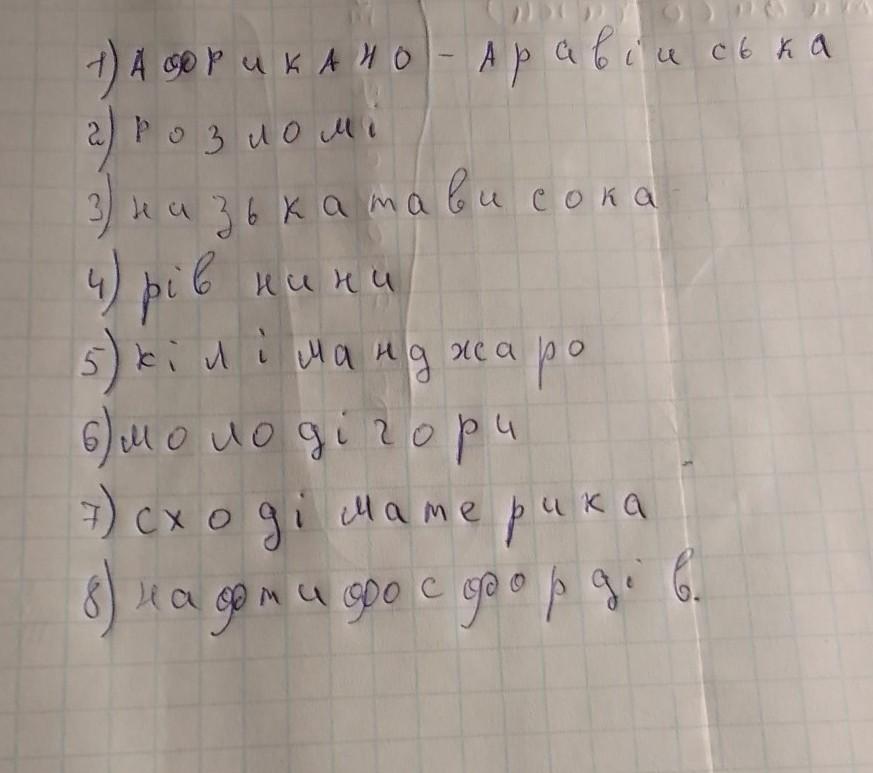 1) Африкано - Аравійська
2) розломі
3) низькатависока
4) рівнини
5) кіліманджаро
6) молодігори
7) східіматерика
8) нафтифосфордів.